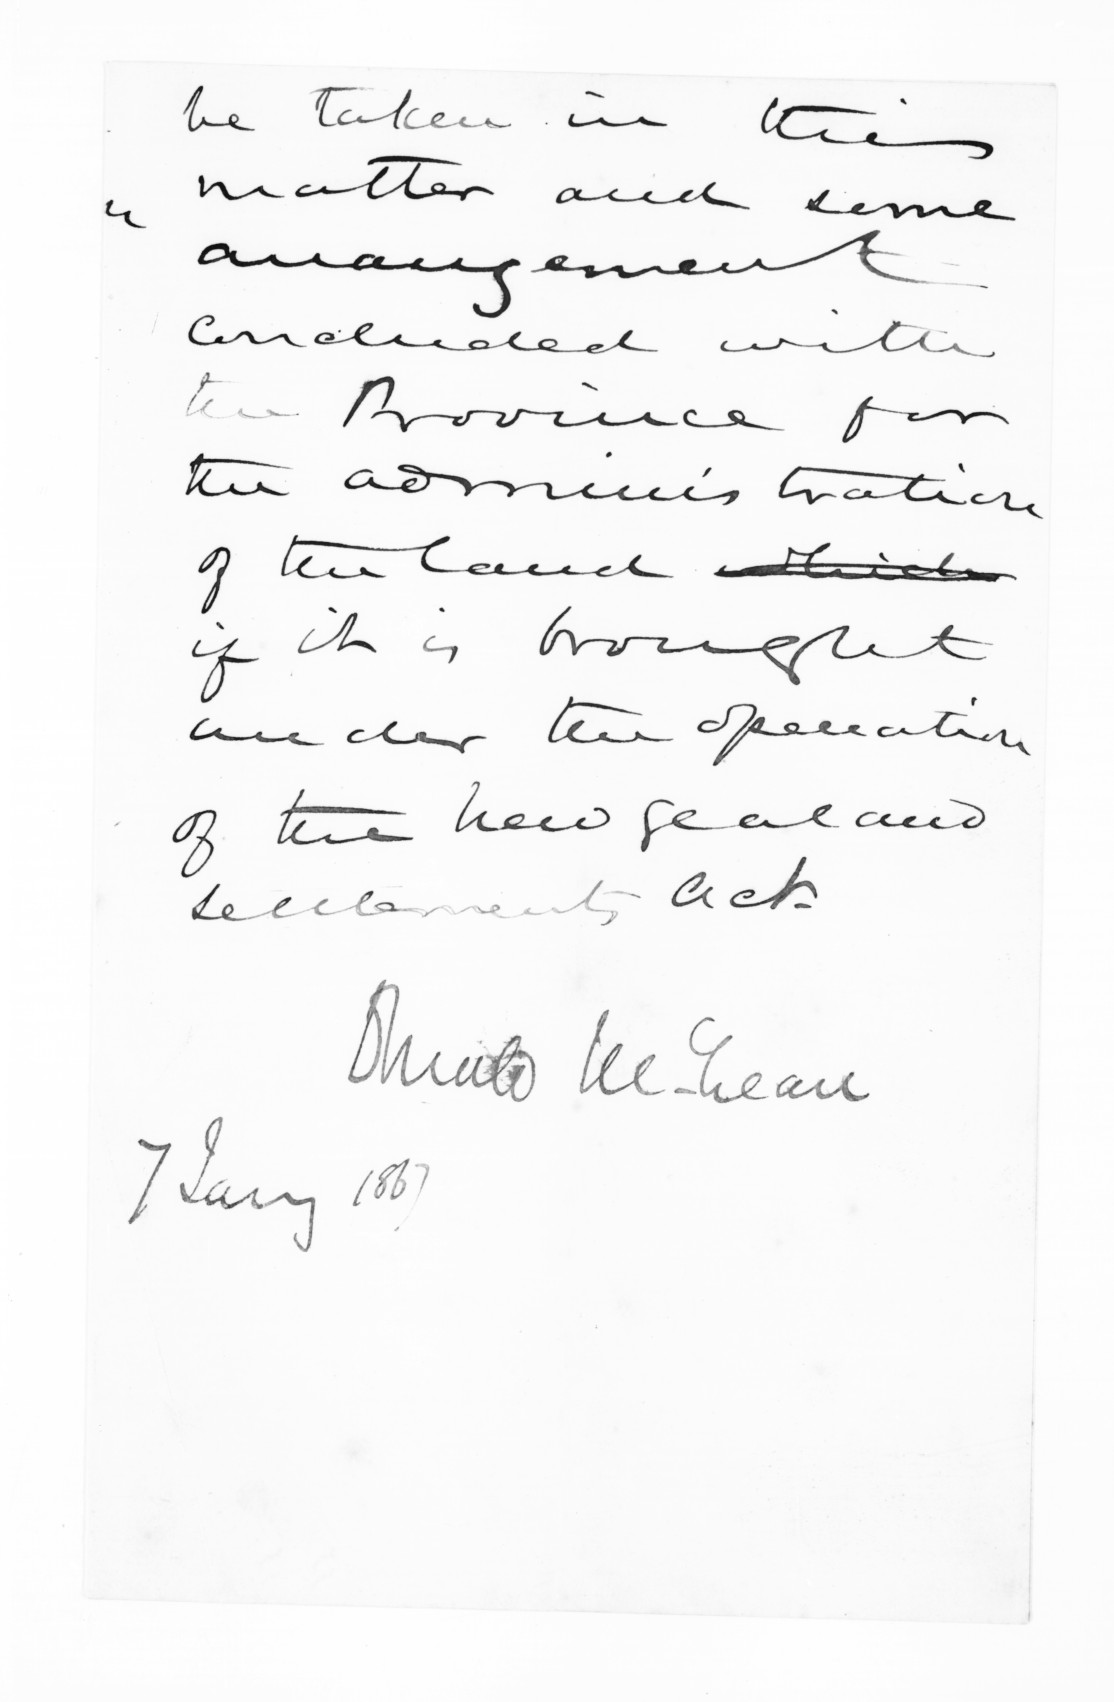 be taken in this
matter and some
arrangement
concluded with
the Province for
the administration
of the land which
if it is brought
under the operation
of the New Zealand
Settlements Act.
Donald McLean
7 Jany 1867